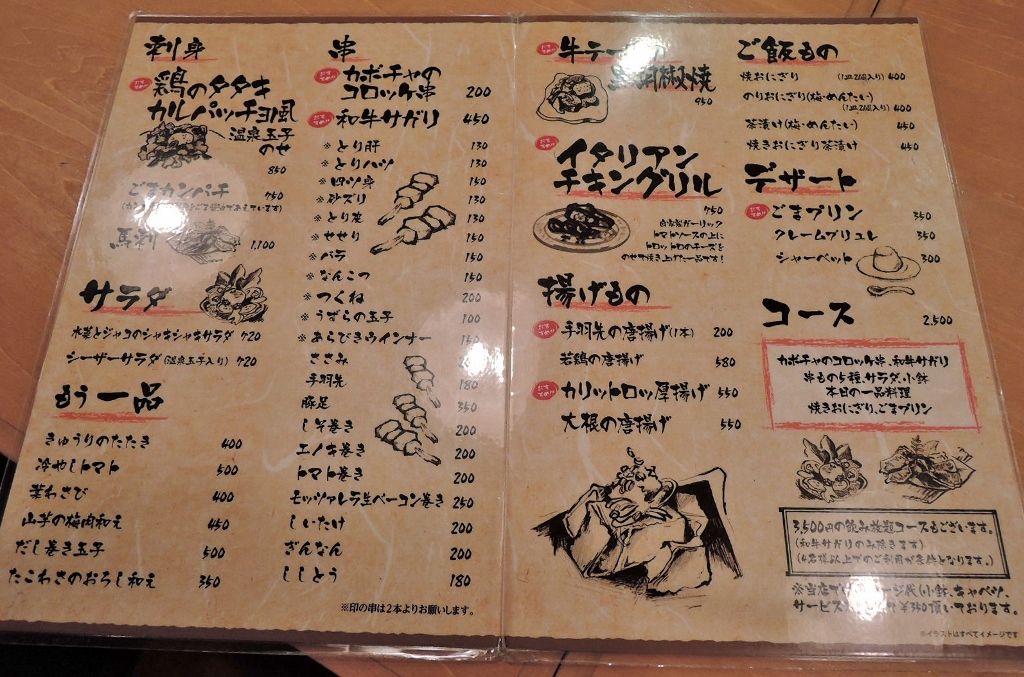 刺身
おすすめ!!
鶏のタタキ
カルパッチョ風
温泉玉子
のせ
850
ごまカンパチ 750
馬刺 1,100
サラダ
水菜とジャコのシャキシャキサラダ 720
シーザーサラダ(温泉玉子入り) 720
もう一品
きゅうりのたたき 400
冷やしトマト 500
葉わさび 400
山芋の梅肉和え 450
だし巻き玉子 500
たこわさのおろし和え 350
串
おすすめ!!
カボチャの
コロッケ串 200
おすすめ!!
和牛サガリ 450
※とり肝 130
※とりハツ 130
※四ツ身 150
※砂ズリ 130
※とり皮 130
※せせり 150
※バラ 150
※なんこつ 150
※つくね 200
※うずらの玉子 100
※あらびきウインナー 150
ささみ
手羽先 180
豚足 350
しそ巻き 200
エノキ巻き 200
トマト巻き 200
モッツァレラ生ベーコン巻き 250
しいたけ 200
ぎんなん 200
ししとう 180
※印の串は2本よりお願いします。
おすすめ!!
牛テールの
黒胡椒焼
950
おすすめ!!
イタリアン
チキングリル
750
自家製ガーリック
トマトソースの上に
トロットロのチーズを
のせて焼き上げた一品です!
揚げもの
おすすめ!!
手羽先の唐揚げ(1本) 200
若鶏の唐揚げ 580
おすすめ!!
カリットロッ厚揚げ 550
大根の唐揚げ 550
ご飯もの
焼おにぎり (1皿2個入り) 400
のりおにぎり(梅・めんたい)
(1皿2個入り) 400
茶漬け(梅・めんたい) 450
焼きおにぎり茶漬け 450
デザート
おすすめ!!
ごまプリン 350
クレームブリュレ 350
シャーベット 300
コース 2,500
カボチャのコロッケ串、和牛サガリ
串もの5種、サラダ、小鉢
本日の一品料理
焼きおにぎり、ごまプリン
3,500円の飲み放題コースもございます。
(和牛サガリのみ除きます)
(4名様以上でのご利用が条件となります。)
※当店で ージ代(小鉢、キャベツ、
サービス け¥350頂いております。
※イラストはすべてイメージです